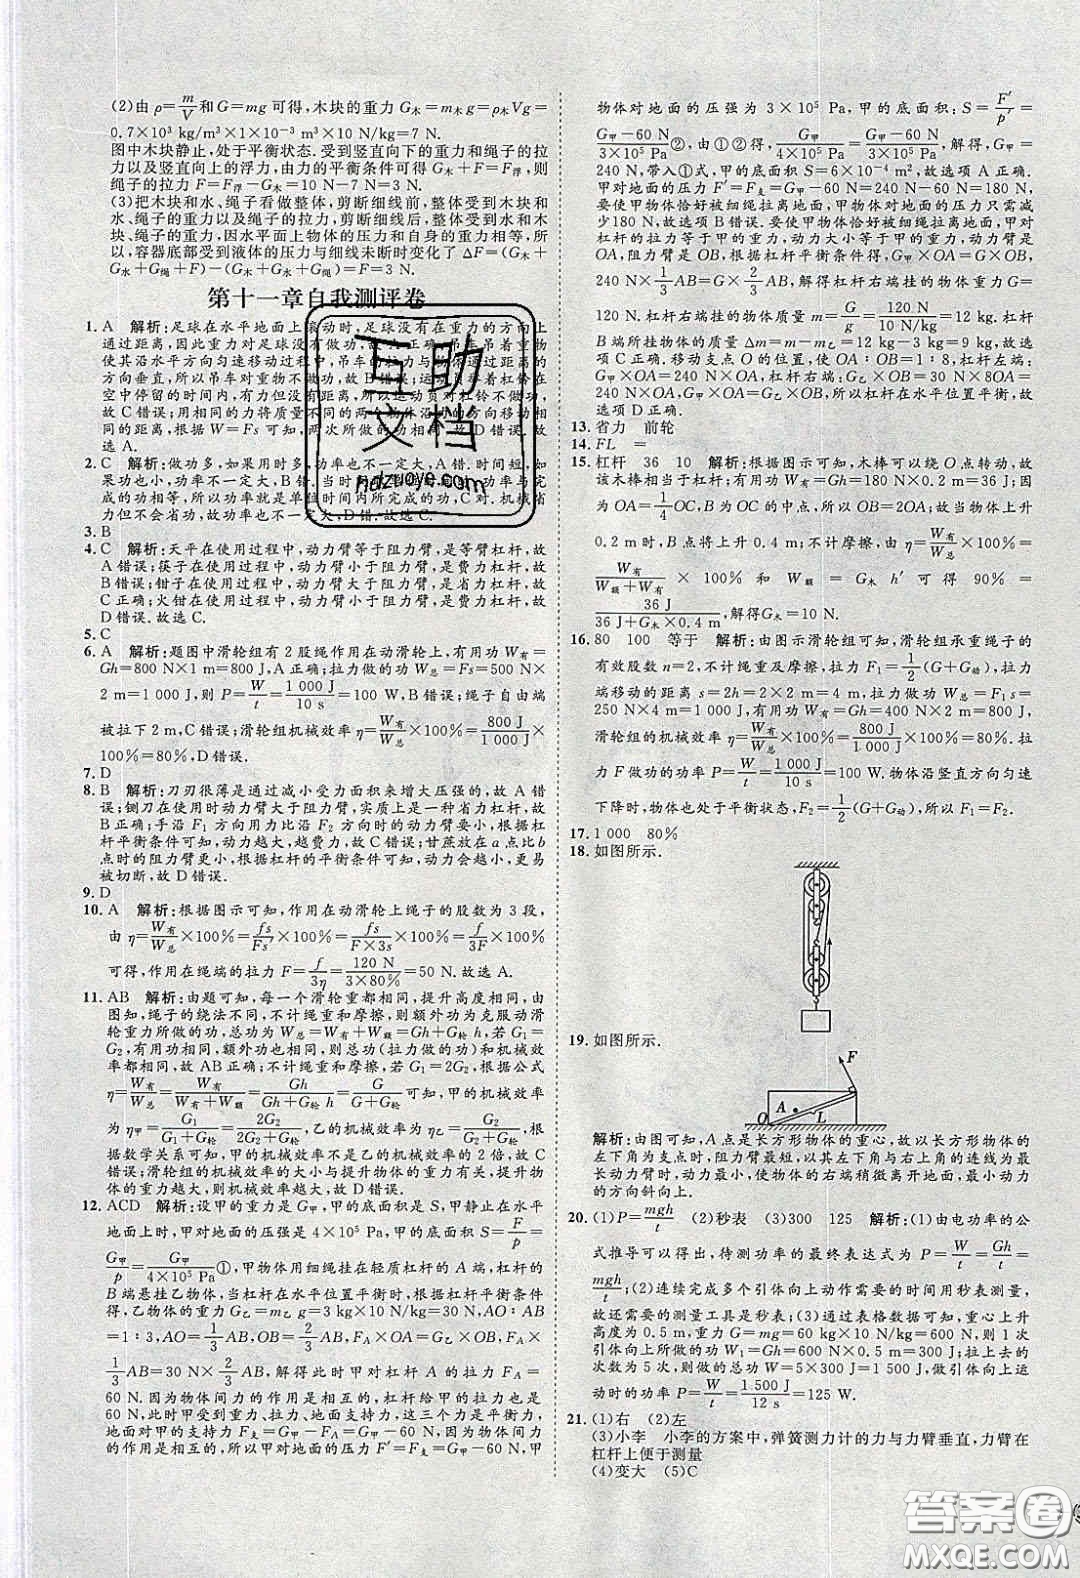 (2)由 ρ=m/V 和G=mg 可得,木块的重力 G木=m木g=ρ木Vg=
0.7×10³ kg/m³×1×10⁻³ m³×10 N/kg=7 N.
图中木块静止,处于平衡状态.受到竖直向下的重力和绳子的拉
力以及竖直向上的浮力,由力的平衡条件可得 G木+F=F浮,则
绳子的拉力 F=F浮-G木=10 N-7 N=3 N.
(3)把木块和水、绳子看做整体,剪断细线前,整体受到木块和
水、绳子的重力以及绳子的拉力,剪断细线后,整体受到水和木
块、绳子的重力,因水平面上物体的压力和自身的重力相等,所
以,容器底部受到液体的压力与细线未断时变化了 ΔF=(G木+
G水+G绳+F)-(G木+G水+G绳)=F=3 N.
第十一章自我测评卷
1. A 解析:足球在水平地面上滚动时,足球没有在重力的方向上
通过距离,因此重力对足球没有做功,故 A 正确;吊车吊着重物
使其沿水平方向匀速移动过程中,吊车的拉力与重物通过距离的
方向垂直,所以吊车对重物不做功,故 B 错误;运动员举着杠铃在
空中停留的时间内,有力但没有距离,所以运动员对杠铃不做功,
故 C 错误;用相同的力将质量不同的两个物体沿力的方向移动相
同的距离,根据 W=Fs 可知,两次所做的功相同,故 D 错误.故
选 A.
2. C 解析:做功多,如果用时多,功率也不一定大,A 错.时间短,如
果功也小,功率也不一定大,B 错.功率大小等于功与
完成的功相
力但不会省功,功率也不一定大,D 错.故选 C.
3. B
4. C 解析:天平在使用过程中,动力臂等于阻力臂,是等臂杠杆,故
A 错误;筷子在使用过程中,动力臂小于阻力臂,是费力杠杆,故
B 错误;钳子在使用过程中,动力臂大于阻力臂,是省力杠杆,故
C 正确;火钳在使用过程中,动力臂小于阻力臂,是费力杠杆,故
D 错误.故选 C.
5. C
6. A 解析:题图中滑轮组有 2 股绳作用在动滑轮上,有用功 W有=
Gh=800 N×1 m=800 J,A 正确;拉力做的总功 W总=Fs=500 N×
2 m=1 000 J,则 P=W/t=1 000 J/10 s=100 W,B 错误;绳子自由端
被拉下 2 m,C 错误;滑轮组机械效率 η=W有/W总×100%=800 J/1 000 J×
100%=80%,D 错误.
7. D
8. B 解析:刀刃很薄是通过减小受力面积来增大压强的,故 A 错
误;铡刀在使用时动力臂大于阻力臂,实质上是一种省力杠杆,故
B 正确;手沿 F₁ 方向用力比沿 F₂ 方向的动力臂要小,根据杠
杆平衡条件可知,动力越大,越费力,故 C 错误;甘蔗放在 a 点比 b
点时的阻力臂更小,根据杠杆的平衡条件可知,动力会越小,更易
被切断,故 D 错误.
9. D
10. A 解析:根据图示可知,作用在动滑轮上绳子的股数为 3 段,
由 η=W有/W总×100%=fs/Fs′×100%=fs/F×3s×100%=f/3F×100%
可得,作用在绳端的拉力 F=f/3η=120 N/3×80%=50 N.故选 A.
11. AB 解析:由题可知,每一个滑轮重都相同,提升高度相同,由
图知,绳子的绕法不同,不计绳重和摩擦,则额外功为克服动滑
轮重力所做的功,总功为 W总=W有+W额=Gh+G轮 h.若 G₁=
G₂,有用功相同,额外功也相同,所以总功(拉力做的功)和机械效
率都相同.故 AB 正确;不计绳重和摩擦,根据公式
η=W有/W总=W有/W有+W额=Gh/Gh+G轮h=G/G+G轮可知,甲的机械效率
为 η甲=G₁/G₁+G轮=2G₂/2G₂+G轮,乙的机械效率 η乙=G₂/G₂+G轮,根
据数学关系可知甲的机械效率不是乙的机械效率的 2 倍,故 C 错
误;滑轮组的机械效率的大小与提升物体的重力有关,提升物体
的重力越大,则机械效率越大,故 D 错误.
12. ACD 解析:设甲的重力是 G甲,甲的底面积是 S,甲静止在水平
地面上时,甲对地面的压强是 4×10⁵ Pa,甲的底面积 S=F/p=
G甲/p=G甲/4×10⁵ Pa①,甲物体用细绳挂在轻质杠杆的 A 端,杠杆的
B 端悬挂乙物体,当杠杆在水平位置平衡时,根据杠杆平衡条件
得,乙物体的重力 G乙=m乙 g=3 kg×10 N/kg=30 N,AO∶OB
=1∶3,AO=1/3AB,OB=2/3AB,FA×OA=G乙×OB,FA×
1/3AB=30 N×2/3AB,解得此时甲对杠杆的拉力 FA=
60 N,因为物体间力的作用是相互的,杠杆给甲的拉力也是
60 N,此时甲受到重力、拉力、地面支持力,这三个力是平衡力,
故地面对物体的支持力 F支=G甲-F=G甲-60 N,因物体间力
的作用是相互的,所以甲对地面的压力 F′=F支=G甲-60 N,甲
物体对地面的压强为 3×10⁵ Pa,甲的底面积:S=F′/p′=
G甲-60 N/3×10⁵ Pa②,由①②解得,G甲/4×10⁵ Pa=G甲-60 N/3×10⁵ Pa,G甲=
240 N,带入①式,甲的底面积 S=6×10⁻⁴ m²,故选项 A 正确.
甲对地面的压力 F′=F支=G甲-60 N=240 N-60 N=180 N,
要使甲物体恰好被细绳拉离地面,甲对地面的压力至少减
少 180 N,故选项 B 错误.要使甲物体恰好被细绳拉离地面,甲对
杠杆的拉力等于甲的重力,动力大小等于甲的重力,动力臂是
OA,阻力臂是 OB,根据杠杆平衡条件得,G甲×OA=G×OB,
240 N×1/3AB=G×2/3AB,杠杆右端挂的物体重力 G=
120 N,杠杆右端挂的物体质量 m=G/g=120 N/10 N/kg=12 kg,杠杆
B 端所挂物体质量 Δm=m-m乙=12 kg-3 kg=9 kg,所以
选项 C 正确.移动支点 O 的位置,使 OA∶OB=1∶8,杠杆左端:
G甲×OA=240 N×OA,杠杆右端:G乙×OB=30 N×8OA=
240 N×OA,G甲×OA=G乙×OB,所以杠杆在水平位置平衡,故
选项 D 正确.
13. 省力 前轮
14. FL =
15. 杠杆 36 10 解析:根据图示可知,木棒可以绕 O 点转动,故
该木棒相当于杠杆;有用功 W有=Gh=180 N×0.2 m=36 J;因
为 OA=1/4OC,B 点为 OC 的中点,所以 OB=2OA;故当物体上升
0.2 m 时,B 点将上升 0.4 m;不计摩擦,由 η=W有/W总×100%=
W有/W额+W有×100%和 W额=G木 h′可得 90%=
36 J/36 J+G木×0.4 m,解得G木=10 N.
16. 80 100 等于 解析:由图示滑轮组可知,滑轮组承重绳子的
有效股数 n=2,不计绳重及摩擦,拉力 F₁=1/2(G+G动),拉力
端移动的距离 s=2h=2×2 m=4 m,拉力做功 W总=F₁s=
250 N×4 m=1 000 J,有用功 W有=Gh=400 N×2 m=800 J,
滑轮组的机械效率 η=W有/W总×100%=800 J/1 000 J×100%=80%,
拉力 F₁ 做功的功率 P=W总/t=1 000 J/10 s=100 W.物体沿竖直方向匀速
下降时,物体也处于平衡状态,F₂=1/2(G+G动),所以 F₁=F₂.
17. 1 000 80%
18. 如图所示.
19. 如图所示.
F
A
O
L
解析:由图可知,A 点是长方形物体的重心,故以长方形物体的
左下角为支点时,阻力臂最短,以其左下角与右上角的连线为最
长动力臂时,动力最小,使物体的右端稍微离开地面,最小动力
的方向斜向上.
20. (1)P=mgh/t (2)秒表 (3)300 125 解析:(1)由电功率的公
式推导可以得出,待测功率的最终表达式为 P=W/t=Gh/t=
mgh/t;(2)连续完成多个引体向上动作需要的时间用秒表测量,
故还需要的测量工具是秒表;(3)通过表格数据可知,引体向上升
高度为 0.5 m,重力 G=mg=60 kg×10 N/kg=600 N,则 1 次
引体向上所做的功 W₁=Gh=600 N×0.5 m=300 J,拉上去的
次数为 5 次,则做的总功 W=5×300 J=1 500 J,做引体向上运
动时的功率 P=W/t=1 500 J/12 s=125 W.
21. (1)右 (2)左
(3)小李 小李的方案中,弹簧测力计的力与力臂垂直,力臂在
杠杆上便于测量
(4)变大 (5)C
互助
文档
hdzuoye.com
答案圈
MXQE.COM